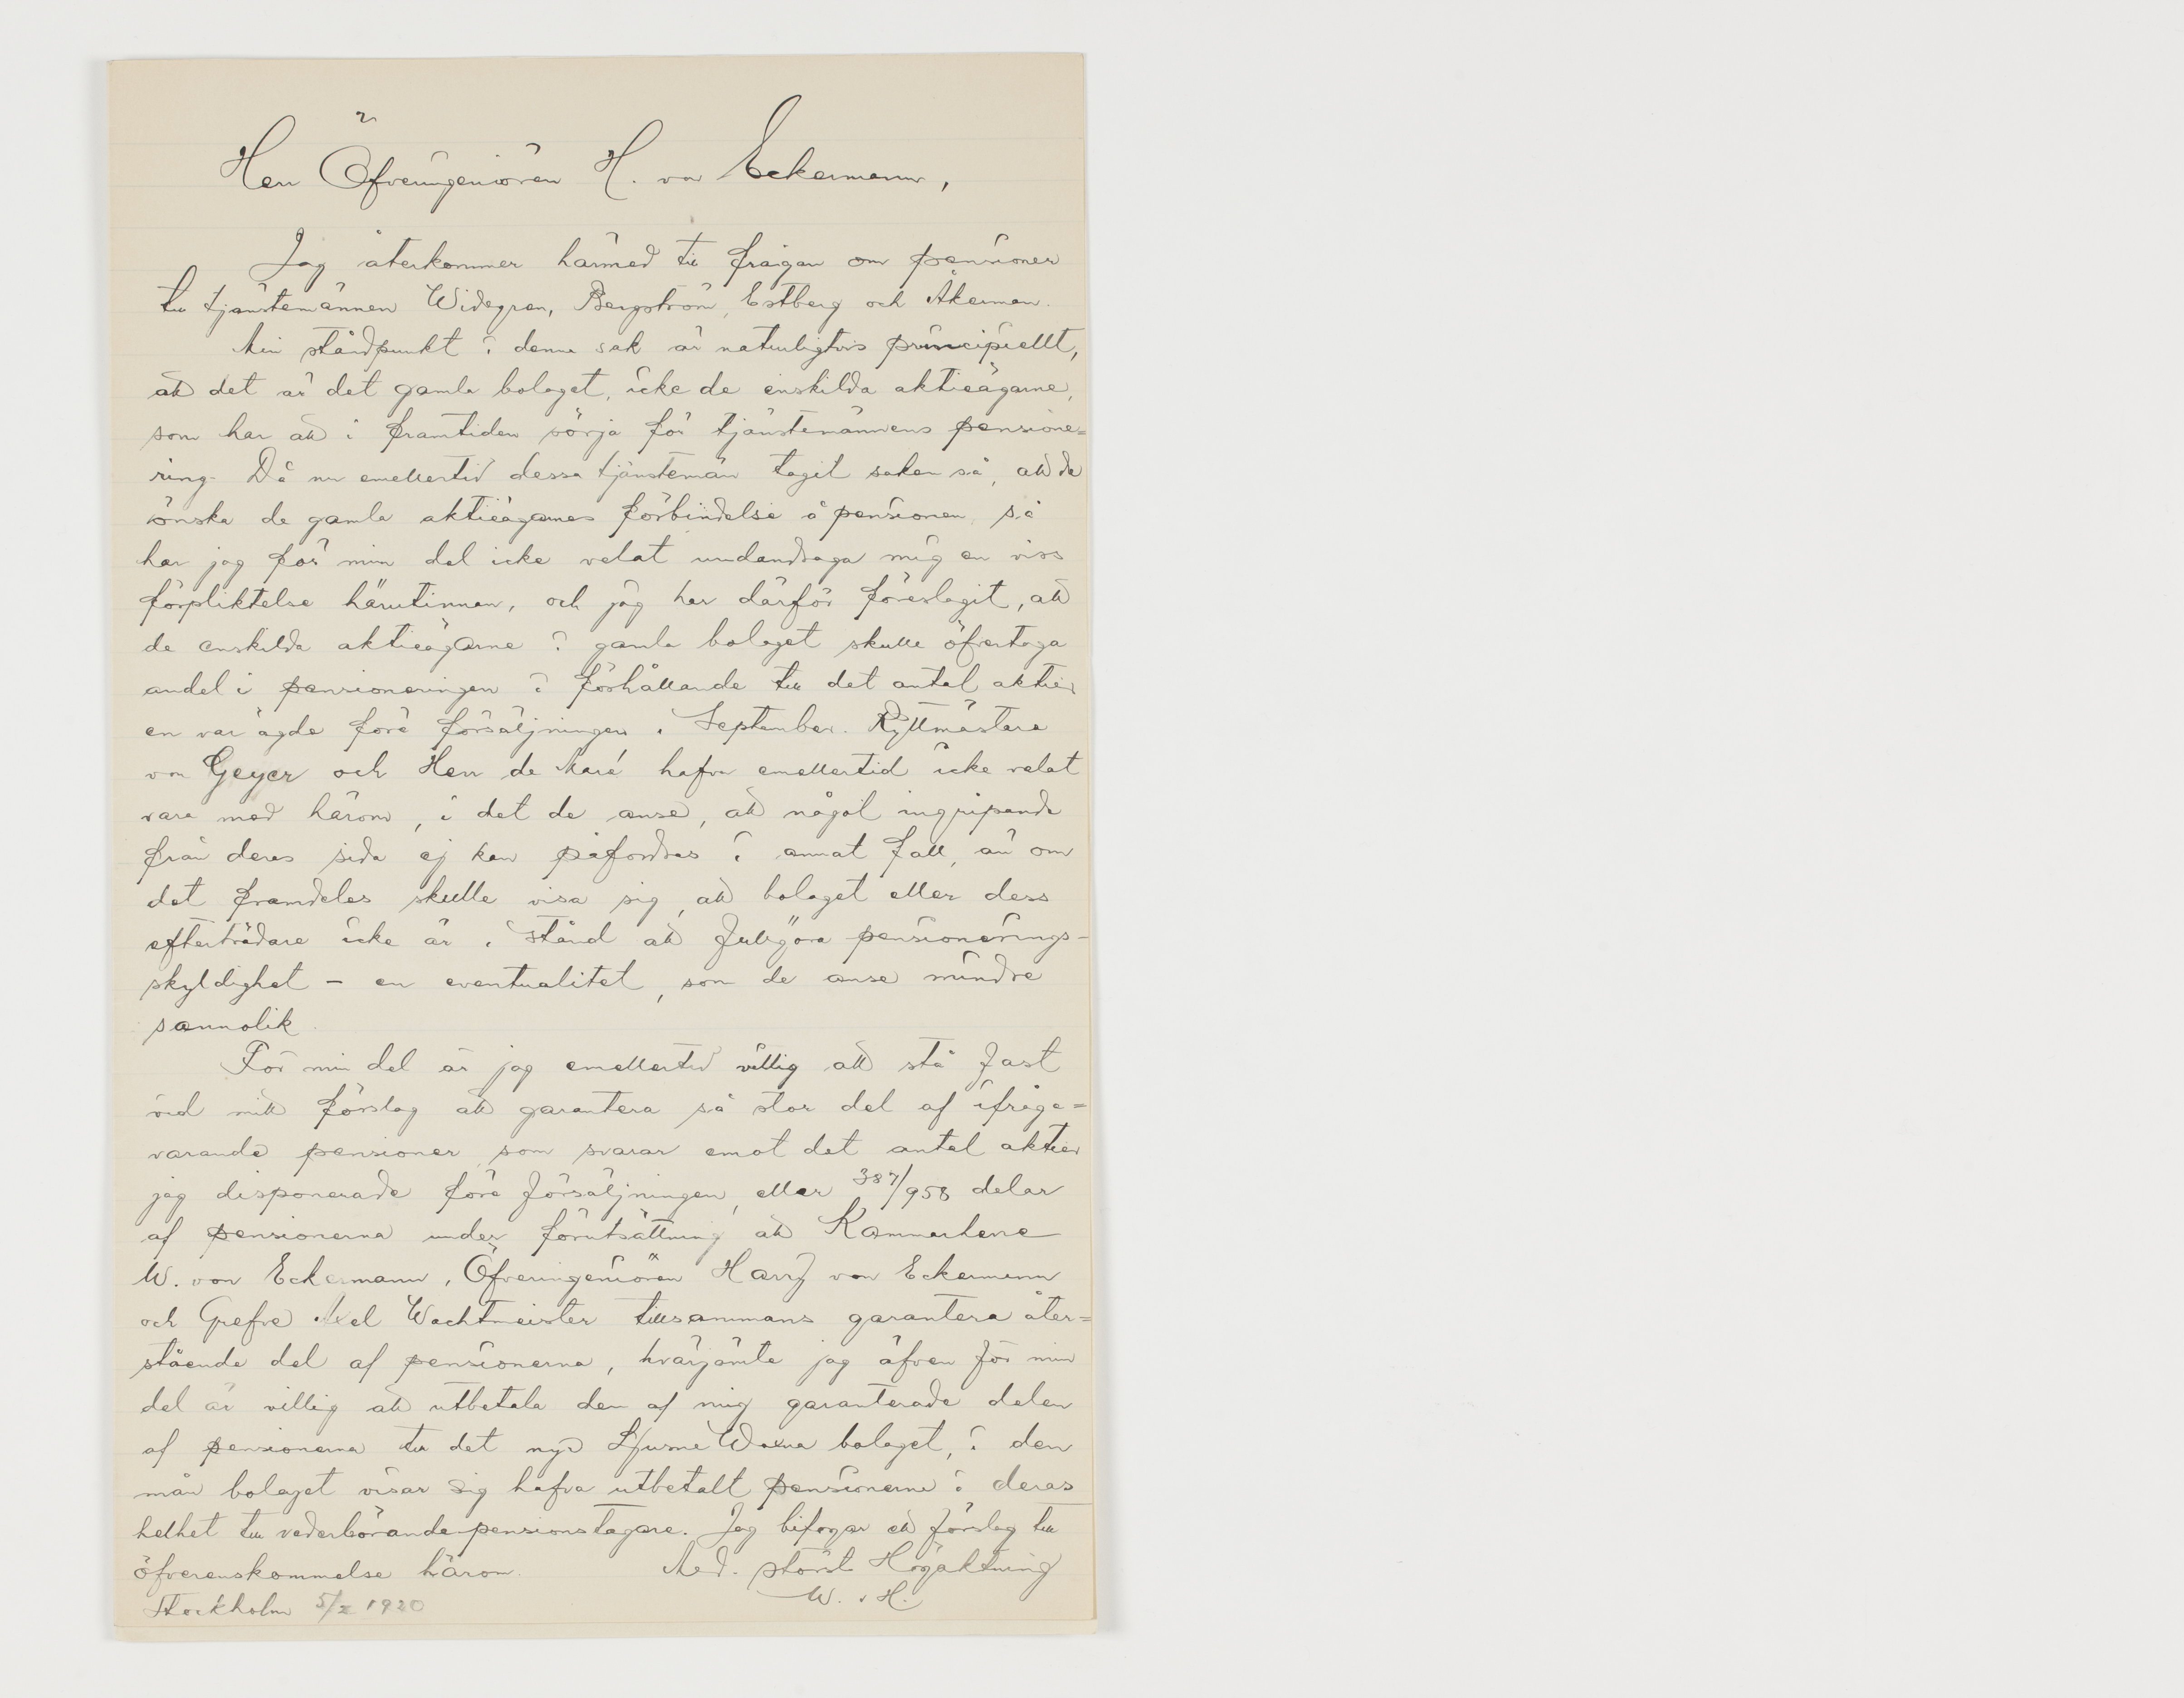 Herr Öfveringeniören H. von Eckermann,
Jag återkommer härmed till frågan om pensioner
till tjänstemännen Widegren, Bergström, Estberg och Åkerman.
Min ståndpunkt i denna sak är naturligtvis principiellt,
att det är det gamla bolaget, icke de enskilda aktieägarne,
som har att i framtiden sörja för tjänstemännens pensione=
ring. Då nu emellertid dessa tjänstemän tagit saken så, att de
önska de gamla aktieägarnes förbindelse å pensionen, så
har jag för min del icke velat undandraga mig en viss
förpliktelse härutinnan, och jag har därför föreslagit, att
de enskilda aktieägarne i gamla bolaget skulle öfvertaga
andel i pensioneringen i förhållande till det antal aktier
en var ägde före försäljningen i September. Ryttmästare
von Geyer och Herr de Maré hafva emellertid icke velat
vara med härom, i det de anse, att något ingripande
från deras sida ej kan påfordras i annat fall, än om
det framdeles skulle visa sig, att bolaget eller dess
efterträdare icke är i stånd att fullgöra pensionerings-
skyldighet – en eventualitet, som de anse mindre
sannolik.
För min del är jag emellertid villig att stå fast
vid mitt förslag att garantera så stor del af ifråga=
varande pensioner som svarar emot det antal aktier
jag disponerade före försäljningen, eller 387/958 delar
af pensionerna under förutsättning att Kammarherre
W. von Eckermann, Öfveringeniören Harry von Eckermann
och Grefve Axel Wachtmeister tillsammans garantera åter=
stående del af pensionerna, hvarjämte jag äfven för min
del är villig att utbetala den af mig garanterade delen
af pensionerna till det nya Ljusne Woxna bolaget, i den
mån bolaget visar sig hafva utbetalt pensionerna i deras
helhet till vederbörande pensionstagare. Jag bifogar ett förslag till
öfverenskommelse härom. Med största Högaktning
Stockholm 5/2 1920 W. v H.